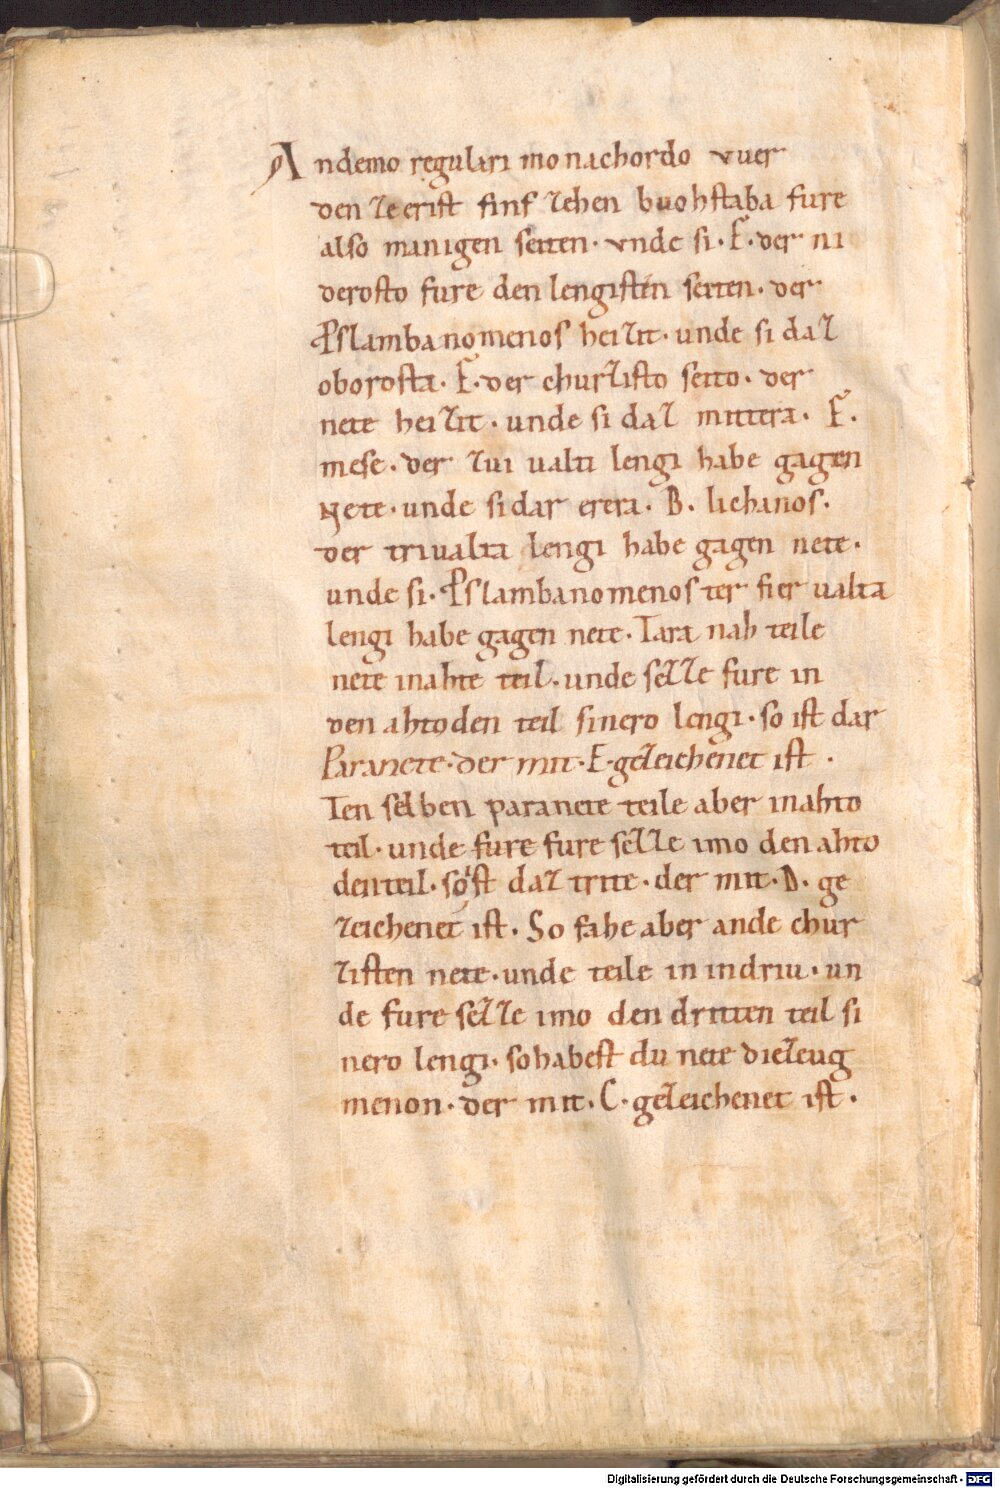 An demo regulari monachordo vuer
den ze erist finf zehen buohstaba fure
also manigen seiten· vnde si· F· der ni
derosto fure den lengisten seiten· der
Pslambanomenos heizit· unde si daz
oborosta· F· der churzisto seito· der
nete heizit· unde si daz mittera· F·
mese· der zui ualti lengi habe gagen
Nete· unde si dar erera· B· lichanos·
der triualta lengi habe gagen nete·
unde si· Pslambanomenos ter fier ualta
lengi habe gagen nete· Tara nah teile
nete in ahte teil· unde sezze fure in
den ahtoden teil sinero lengi· so ist dar
Paranete· der mit· E· gezeichenet ist·
Ten selben paranete teile aber in ahto
teil· unde fure fure sezze imo den ahto
den teil· so ist daz trite· der mit· D· ge
zeichenet ist· So fahe aber ande chur
zisten nete· unde teile in in driu· un
de fure sezze imo den dritten teil si
nero lengi· so habest du nete diezeug
menon· der mit· C· gezeichenet ist·
Digitalisierung gefördert durch die Deutsche Forschungsgemeinschaft - DFG